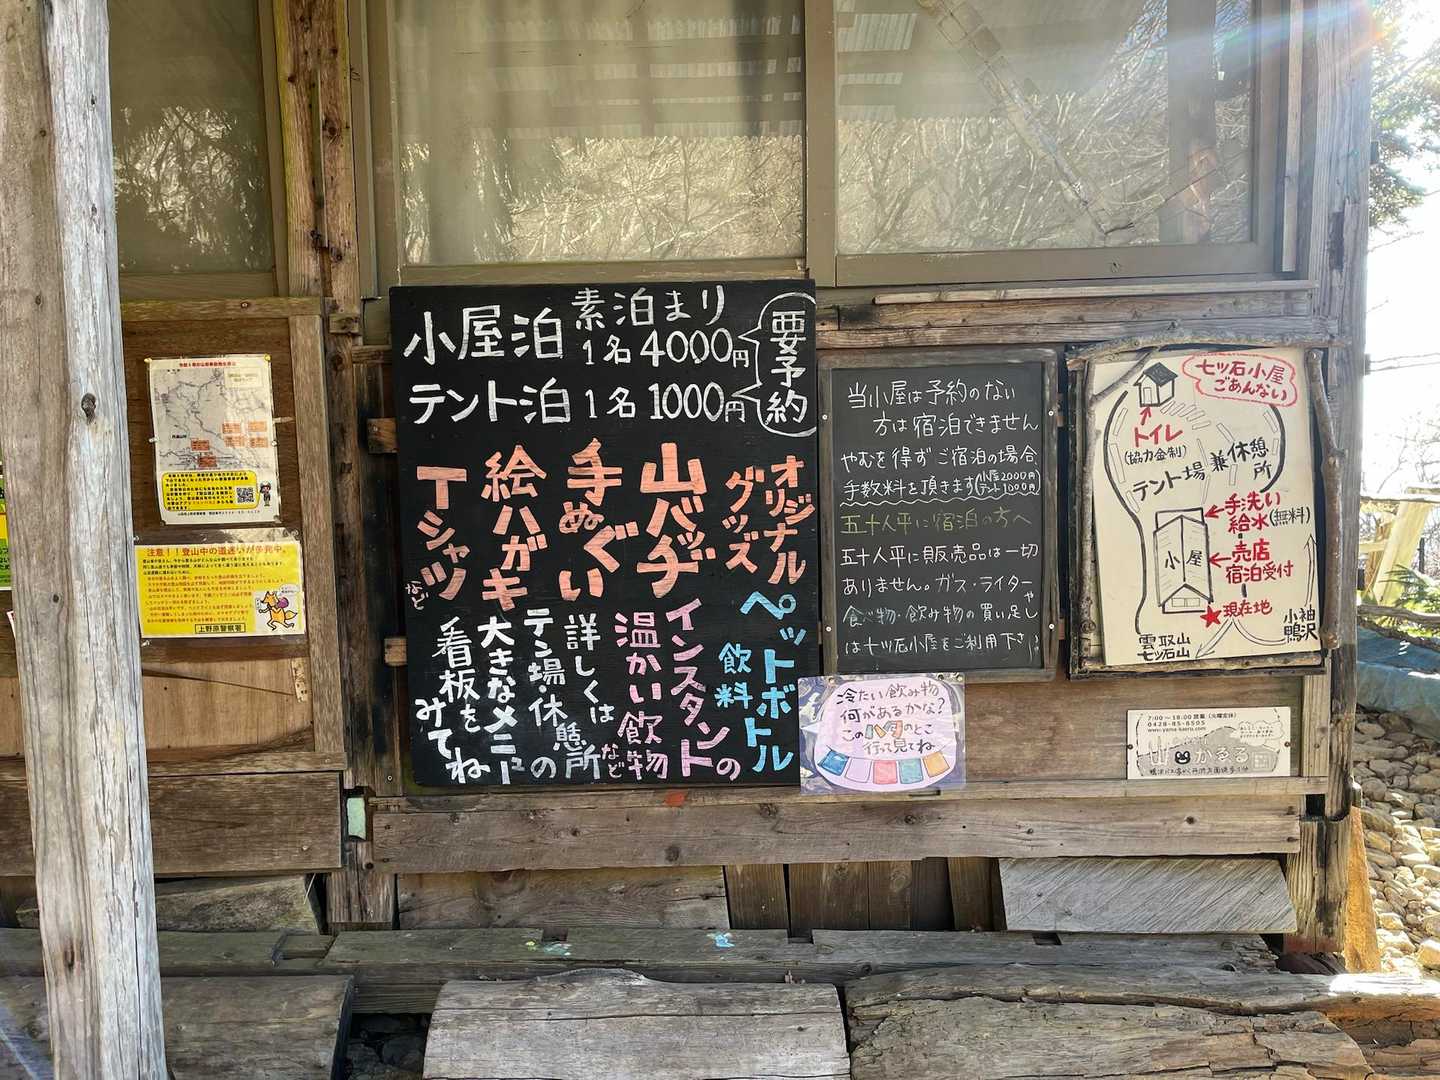 小屋泊 素泊まり
1名 4000円
テント泊 1名 1000円
要予約
オリジナル
グッズ
山バッヂ
手ぬぐい
絵ハガキ
Tシャツ
など
ペットボトル
飲料
インスタントの
温かい飲物
など
詳しくは
テン場・休憩所の
大きなメニュー
看板を
みてね
当小屋は予約のない
方は宿泊できません
やむを得ずご宿泊の場合
手数料を頂きます(小屋2000円
テント1000円)
五十人平に宿泊の方へ
五十人平に販売品は一切
ありません。ガス・ライターや
食べ物・飲み物の買い足し
は七ツ石小屋をご利用下さい
七ツ石小屋
ごあんない
トイレ
(協力金制)
テント場 兼休憩所
手洗い
給水(無料)
小屋
売店
宿泊受付
★現在地
雲取山
七ツ石山
小袖
鴨沢
冷たい飲み物
何があるかな?
このハタのとこ
行って見てね
7:00~18:00営業(火曜定休)
0428-85-8505
www.yama-kaeru.com
山かゑる
注意!!登山中の道迷いが多発中。
上野原警察署